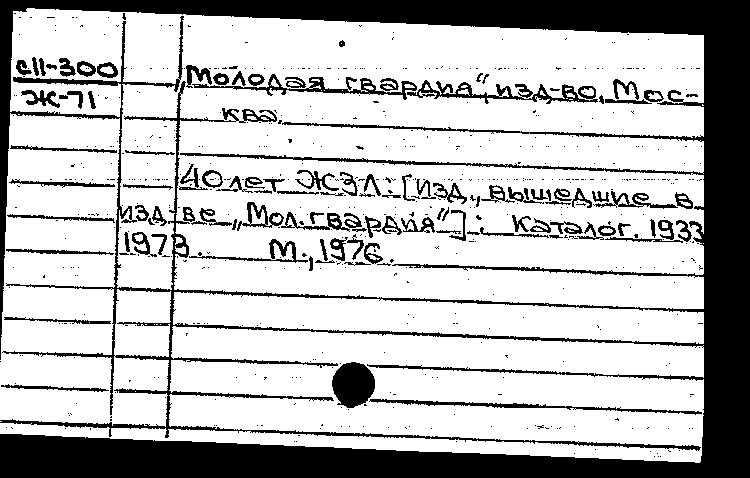 с11-300
Ж-71
„Молодая гвардия“, изд-во. Мос-
ква.
40 лет ЖЗЛ: [изд., вышедшие в
изд-ве „Мол. гвардия“]: Каталог. 1933
1973. М., 1976.